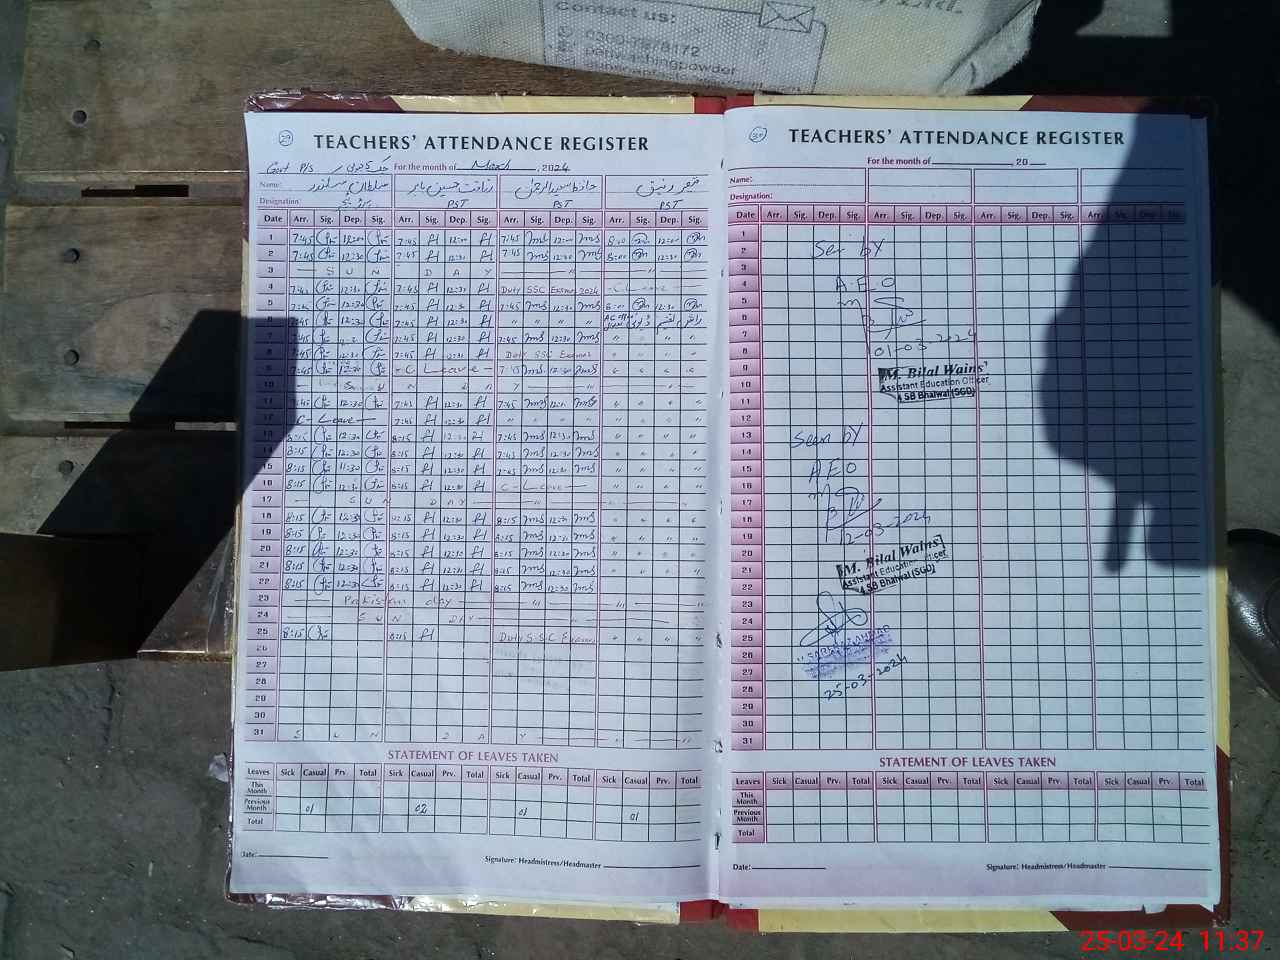 Contact us:
0300-7878172
penwashingpowder
29
TEACHERS' ATTENDANCE REGISTER
Govt P/S
For the month of March, 2024
Name: سلطان سکندر
Designation: PST PST PST
Date Arr. Sig. Dep. Sig. Arr. Sig. Dep. Sig. Arr. Sig. Dep. Sig. Arr. Sig. Dep. Sig.
1 7:45 12:00 7:45 12:00 7:45 12:00 8:00 12:00
2 7:45 12:30 7:45 12:30 7:45 12:30 8:00 12:30
3 SUN DAY
4 7:45 12:30 7:45 12:30 Duty SSC Exams 2024 C-Leave
5 7:45 12:30 7:45 12:30 7:45 12:30 8:00 12:30
6 7:45 12:30 7:45 12:30 " " " "
7 7:45 7:45 12:30 7:45 12:30 " " " "
8 7:45 12:30 7:45 12:30 Duty SSC Exams " " " "
9 7:45 12:30 - C Leave - 7:45 12:30 " " " "
10 SUN DAY
11 7:45 12:30 7:45 12:30 7:45 " " " "
12 C-Leave 7:45 12:30 " " " " " " " "
13 8:15 12:30 8:15 12:30 7:45 12:30 " " " "
14 8:15 12:30 8:15 12:30 7:45 12:30 " " " "
15 8:15 11:30 8:15 12:30 7:45 12:30 " " " "
16 8:15 12:30 8:15 12:30 C-Leave " " " "
17 SUN DAY
18 8:15 12:30 8:15 12:30 8:15 12:30 " " " "
19 8:15 12:30 8:15 12:30 8:15 12:30 " " " "
20 8:15 12:30 8:15 12:30 8:15 12:30 " " " "
21 8:15 12:30 8:15 12:30 8:15 12:30 " " " "
22 8:15 12:30 8:15 12:30 8:15 12:30 " " " "
23 Pakistan day
24 SUN DAY
25 8:15 8:15 Duty S.S.C Exams " " " "
26
27
28
29
30
31 SUN DAY
STATEMENT OF LEAVES TAKEN
Leaves Sick Casual Prv. Total Sick Casual Prv. Total Sick Casual Prv. Total Sick Casual Prv. Total
This Month
Previous Month 01 02 01 01
Total
Date:
Signature: Headmistress/Headmaster
30
TEACHERS' ATTENDANCE REGISTER
For the month of , 20
Name:
Designation:
Date Arr. Sig. Dep. Sig. Arr. Sig. Dep. Sig. Arr. Sig. Dep. Sig. Arr. Sig. Dep. Sig.
1
2 Seen by
3
4 A.E.O
5
6
7
8 01-03-2024
9 M. Bilal Wains'
10 Assistant Education Officer
11 4 SB Bhalwal (SGD)
12
13 Seen by
14
15 AEO
16
17
18
19 12-03-2024
20 M. Bilal Wains'
21 Assistant Education Officer
22 4 SB Bhalwal (SGD)
23
24
25
26
27
28 25-03-2024
29
30
31
STATEMENT OF LEAVES TAKEN
Leaves Sick Casual Prv. Total Sick Casual Prv. Total Sick Casual Prv. Total Sick Casual Prv. Total
This Month
Previous Month
Total
Date:
Signature: Headmistress/Headmaster
25-03-24 11.37